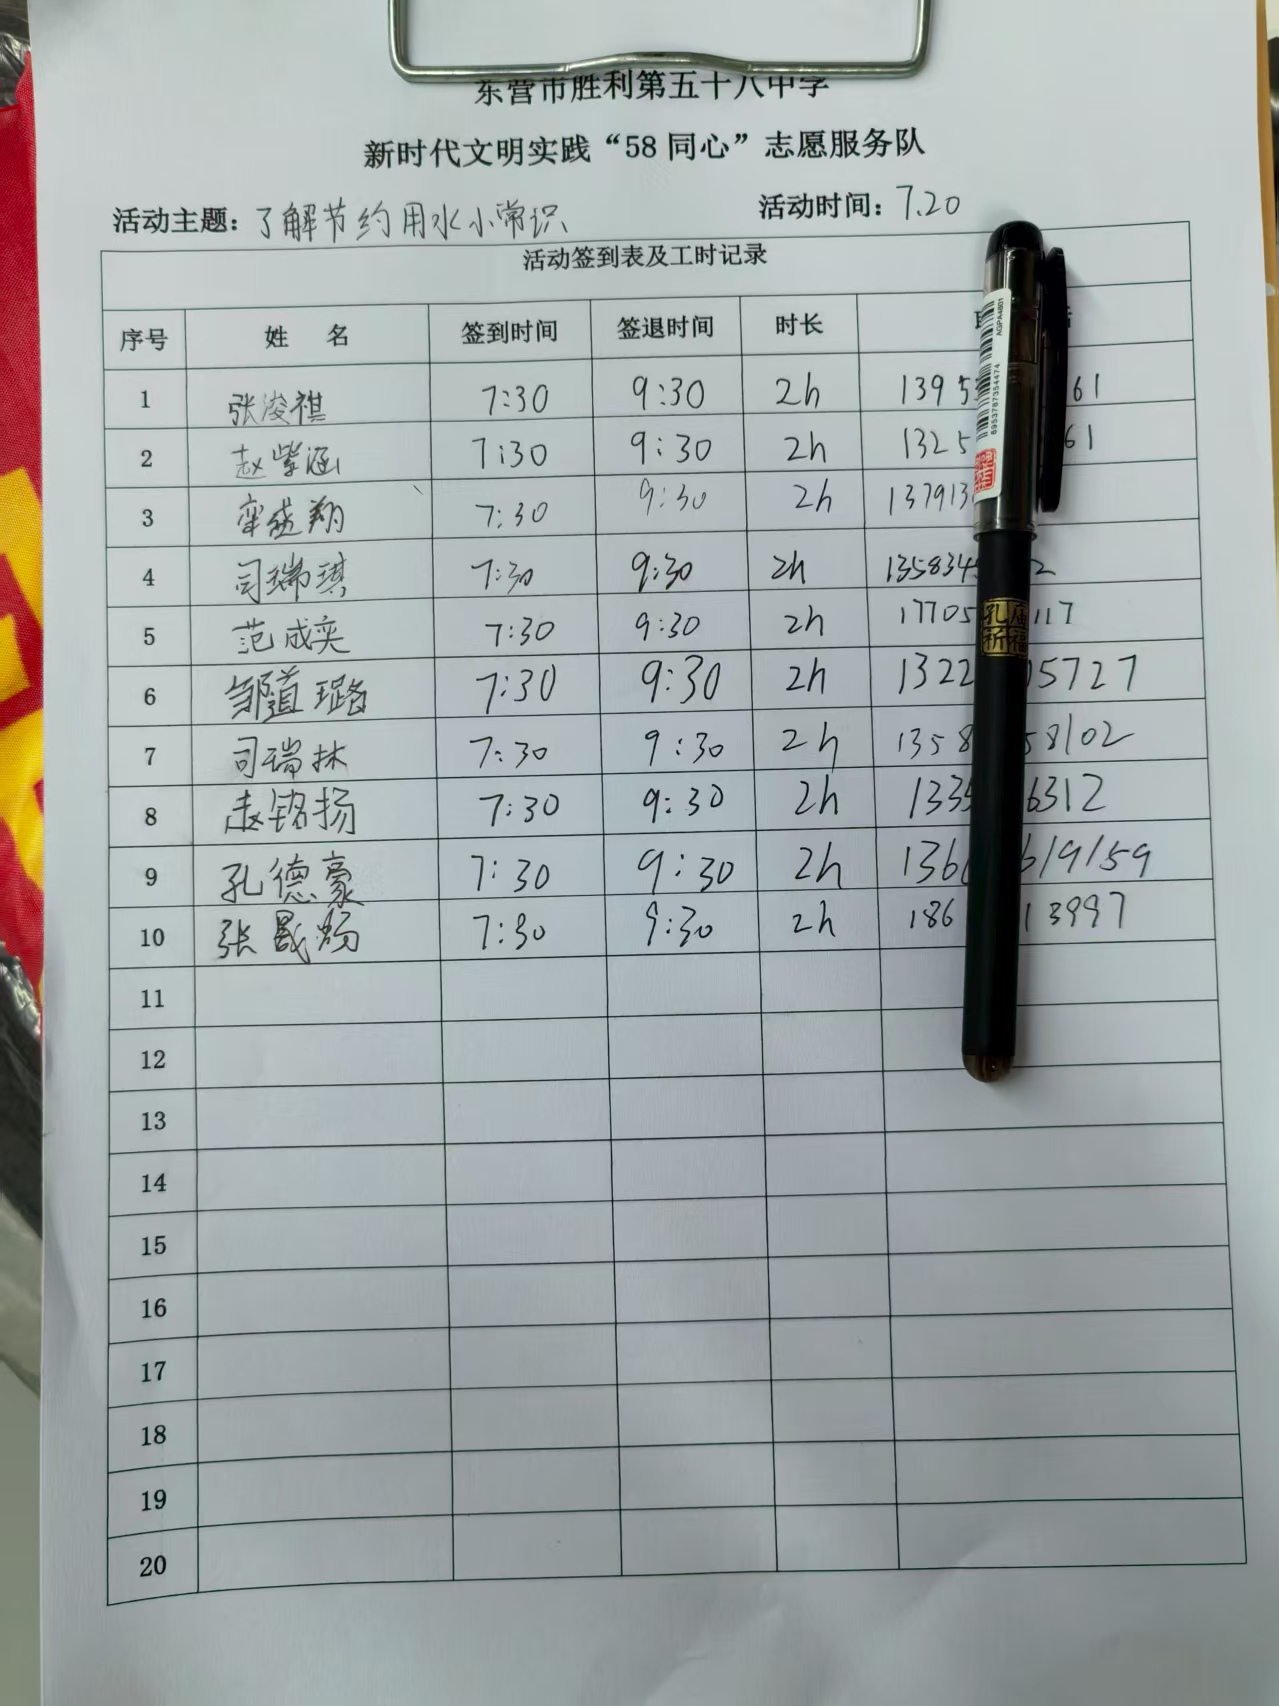 东营市胜利第五十八中学
新时代文明实践“58同心”志愿服务队
活动主题：了解节约用水小常识 活动时间：7.20
活动签到表及工时记录
序号 姓 名 签到时间 签退时间 时长
1 张浚祺 7:30 9:30 2h 1395 61
2 赵紫涵 7:30 9:30 2h 1325 61
3 栾盛翔 7:30 9:30 2h 13791
4 司瑞琪 7:30 9:30 2h 135834 2
5 范成奕 7:30 9:30 2h 17705 117
6 邹道璐 7:30 9:30 2h 1322 5727
7 司瑞林 7:30 9:30 2h 1358 58102
8 赵铭扬 7:30 9:30 2h 133 6312
9 孔德豪 7:30 9:30 2h 136 619159
10 张晟炀 7:30 9:30 2h 186 13997
11
12
13
14
15
16
17
18
19
20
AGPA4801
6953787354474
孔庙
祈福